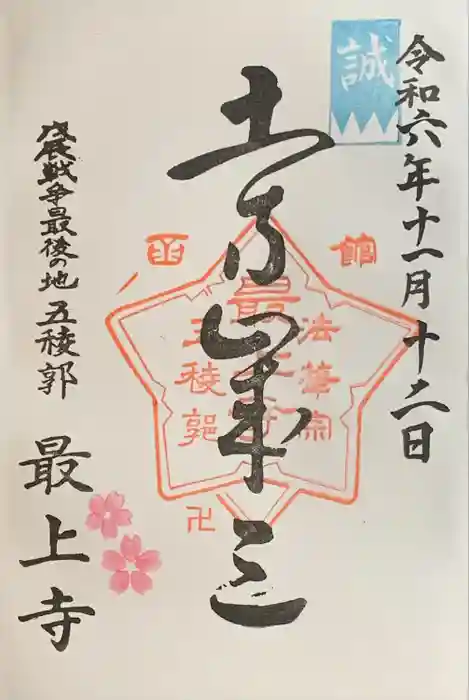 令和六年十一月十二日
誠
土方歳三
函館
法華宗
最上寺
五稜郭
卍
戊辰戦争最後の地 五稜郭
最上寺